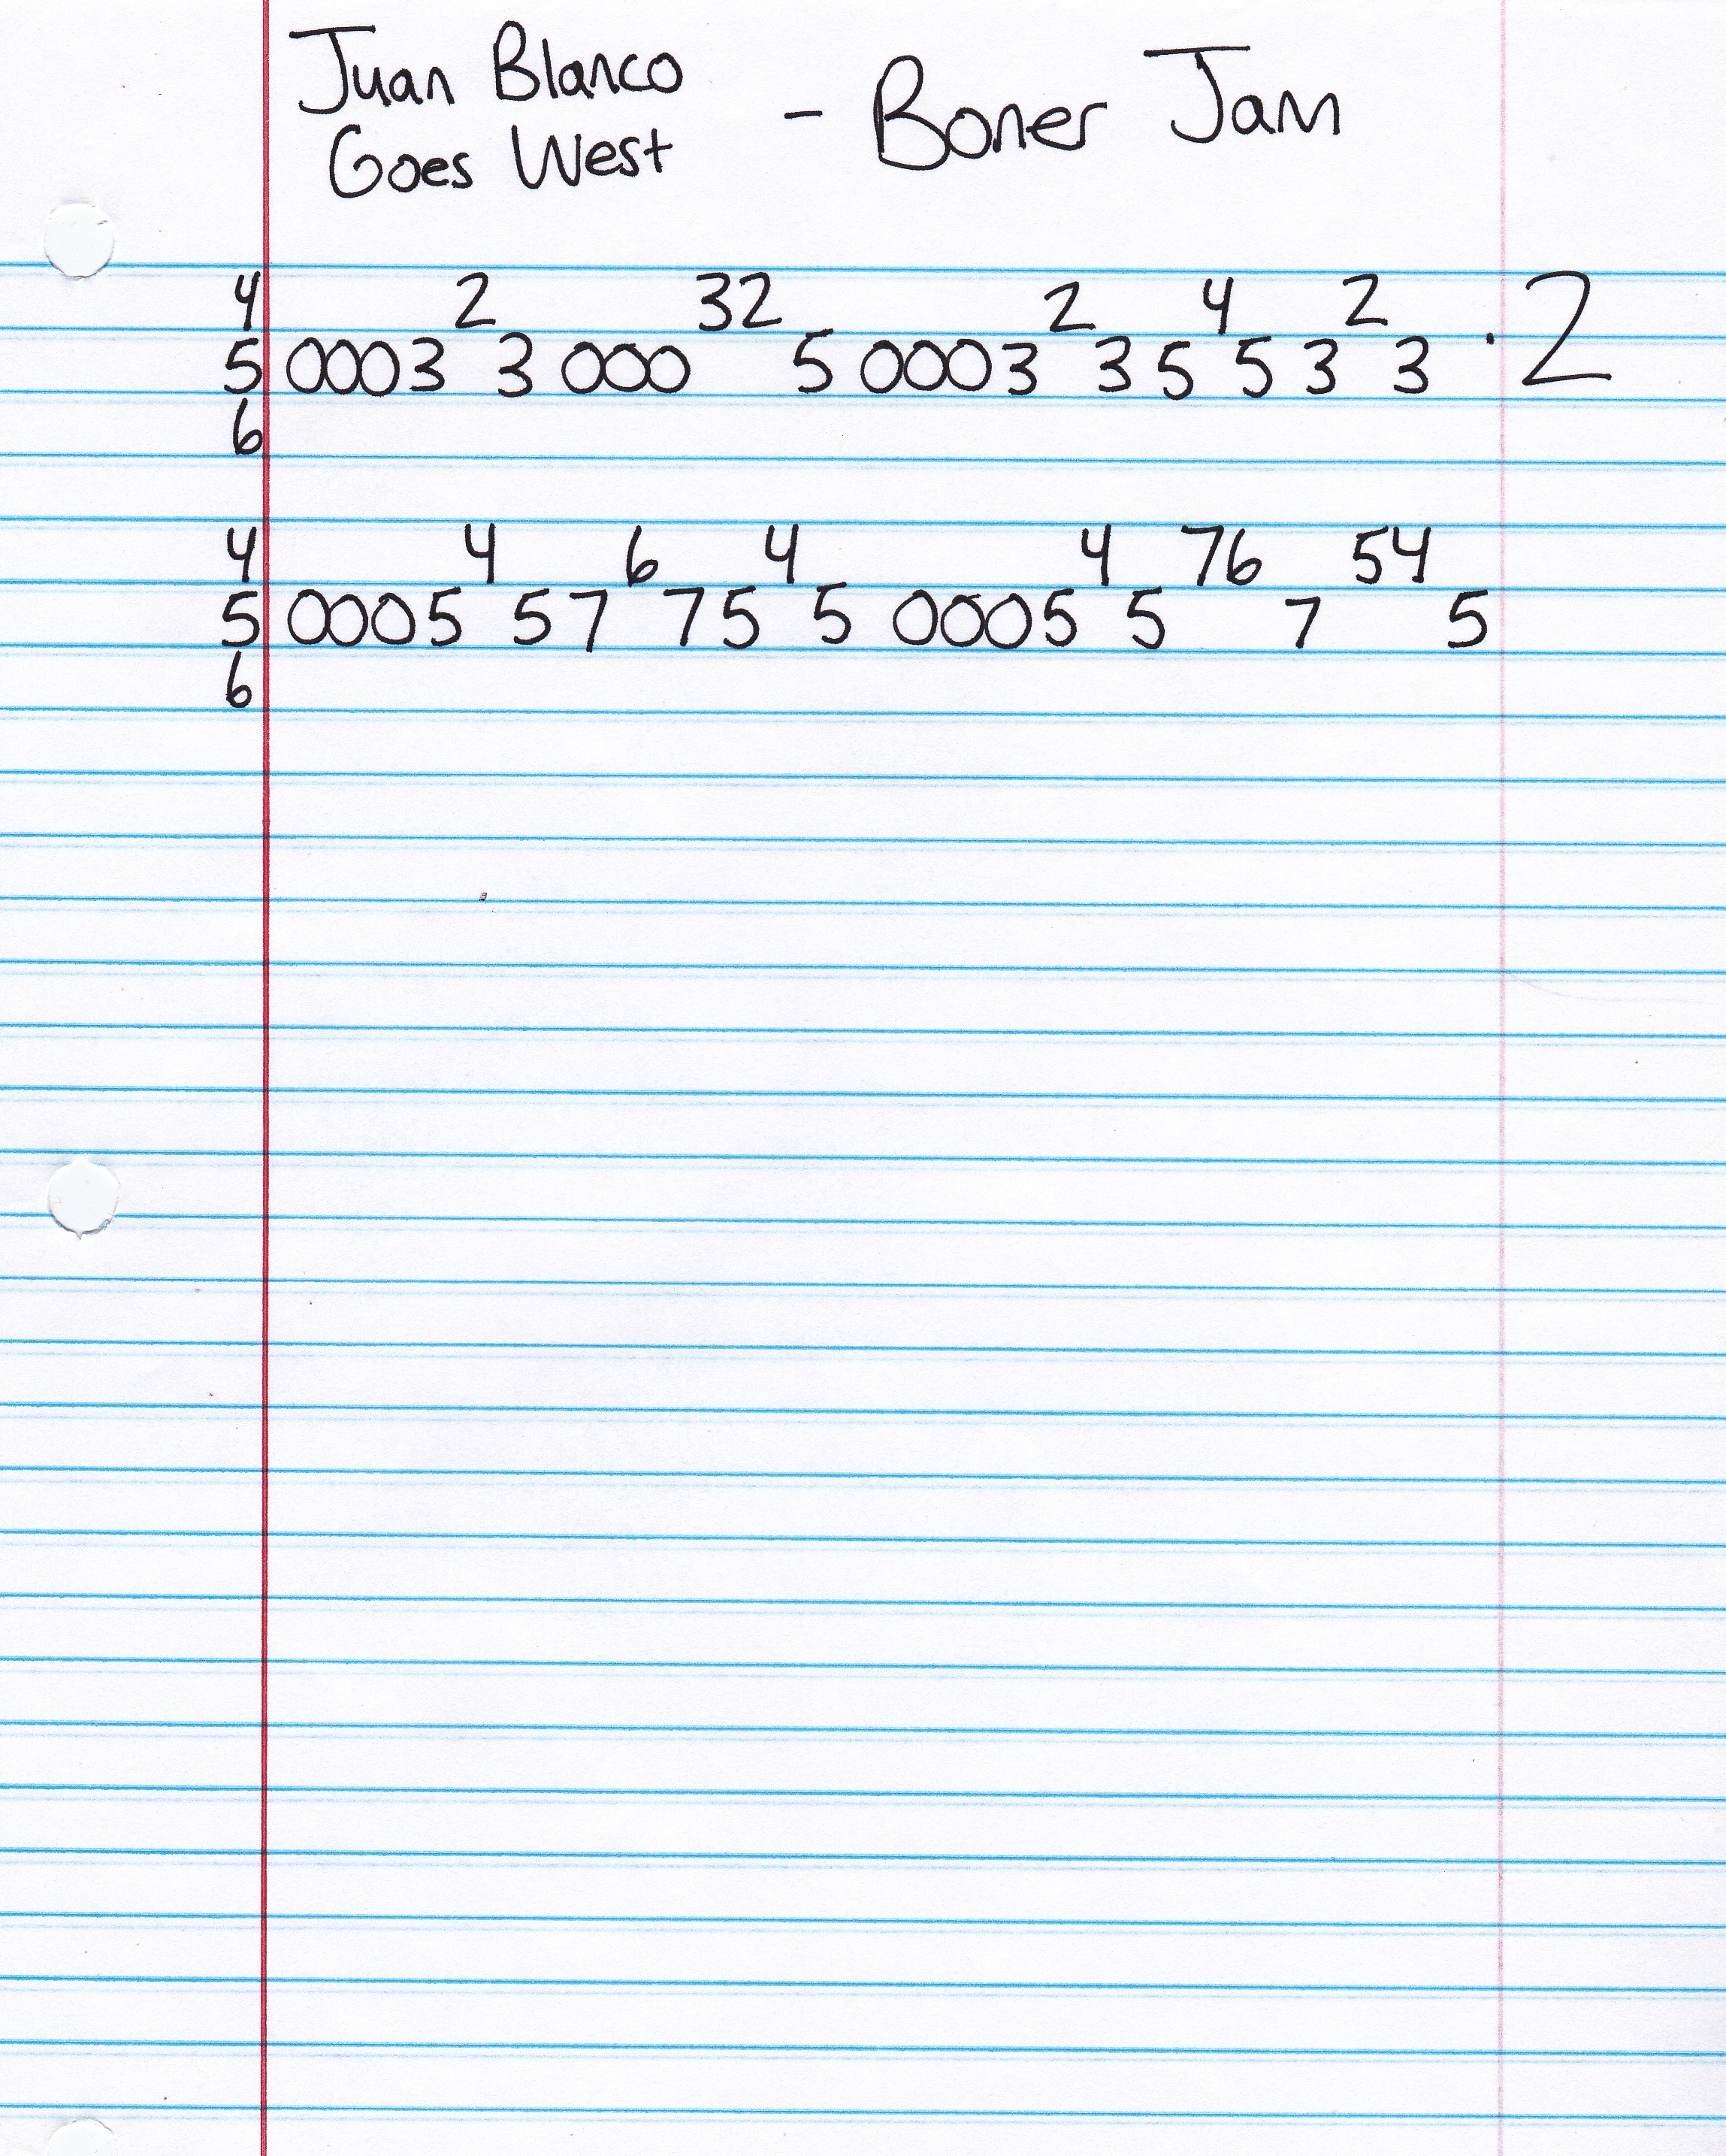 Juan Blanco
Goes West - Boner Jam
4 2 32 2 4 2
5 0003 3 000 5 0003 3 5 5 3 3 · 2
6
4 4 6 4 4 76 54
5 0005 57 75 5 0005 5 7 5
6